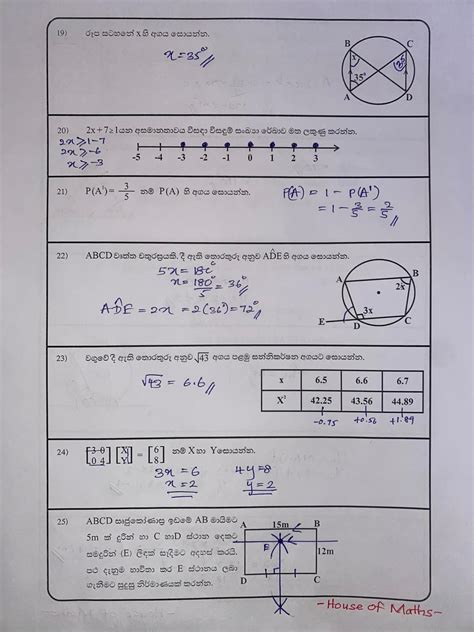 19) රූප සටහනේ x හි අගය සොයන්න.
x = 35°
B C
x
35°
A D
20) 2x + 7 ≥ 1 යන අසමානතාවය විසඳා විසඳුම් සංඛ්‍යා රේඛාව මත ලකුණු කරන්න.
2x ≥ 1-7
2x ≥ -6
x ≥ -3
-5 -4 -3 -2 -1 0 1 2 3
21) P(A') = 3/5 නම් P(A) හි අගය සොයන්න.
P(A) = 1 - P(A')
= 1 - 3/5 = 2/5
22) ABCD වෘත්ත චතුරස්‍රයකි. දී ඇති තොරතුරු අනුව ADE හි අගය සොයන්න.
5x = 180°
x = 180°/5 = 36°
ADE = 2x = 2(36°) = 72°
A B
2x
3x
E D C
23) වගුවේ දී ඇති තොරතුරු අනුව √43 අගය පළමු සන්නිකර්ෂන අගයට සොයන්න.
√43 = 6.6
x 6.5 6.6 6.7
X² 42.25 43.56 44.89
-0.75 +0.56 +1.89
24) [3 0 0 4] [X Y] = [6 8] නම් X හා Y සොයන්න.
3x = 6 4y = 8
x = 2 y = 2
25) ABCD සෘජුකෝණාස්‍ර ඉඩමේ AB මායිමට
5m ක් දුරින් හා C හා D ස්ථාන දෙකට
සමදුරින් (E) ලිඳක් සෑදීමට අදහස් කරයි.
පථ දැනුම භාවිතා කර E ස්ථානය ලබා
ගැනීමට සුදුසු නිර්මාණයක් කරන්න.
A 15m B
E
12m
D C
-House of Maths-